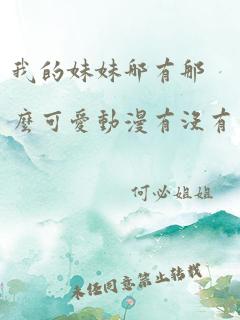 我的妹妹那有那
麼可愛動漫有沒有
何必姐姐
未经同意禁止转载